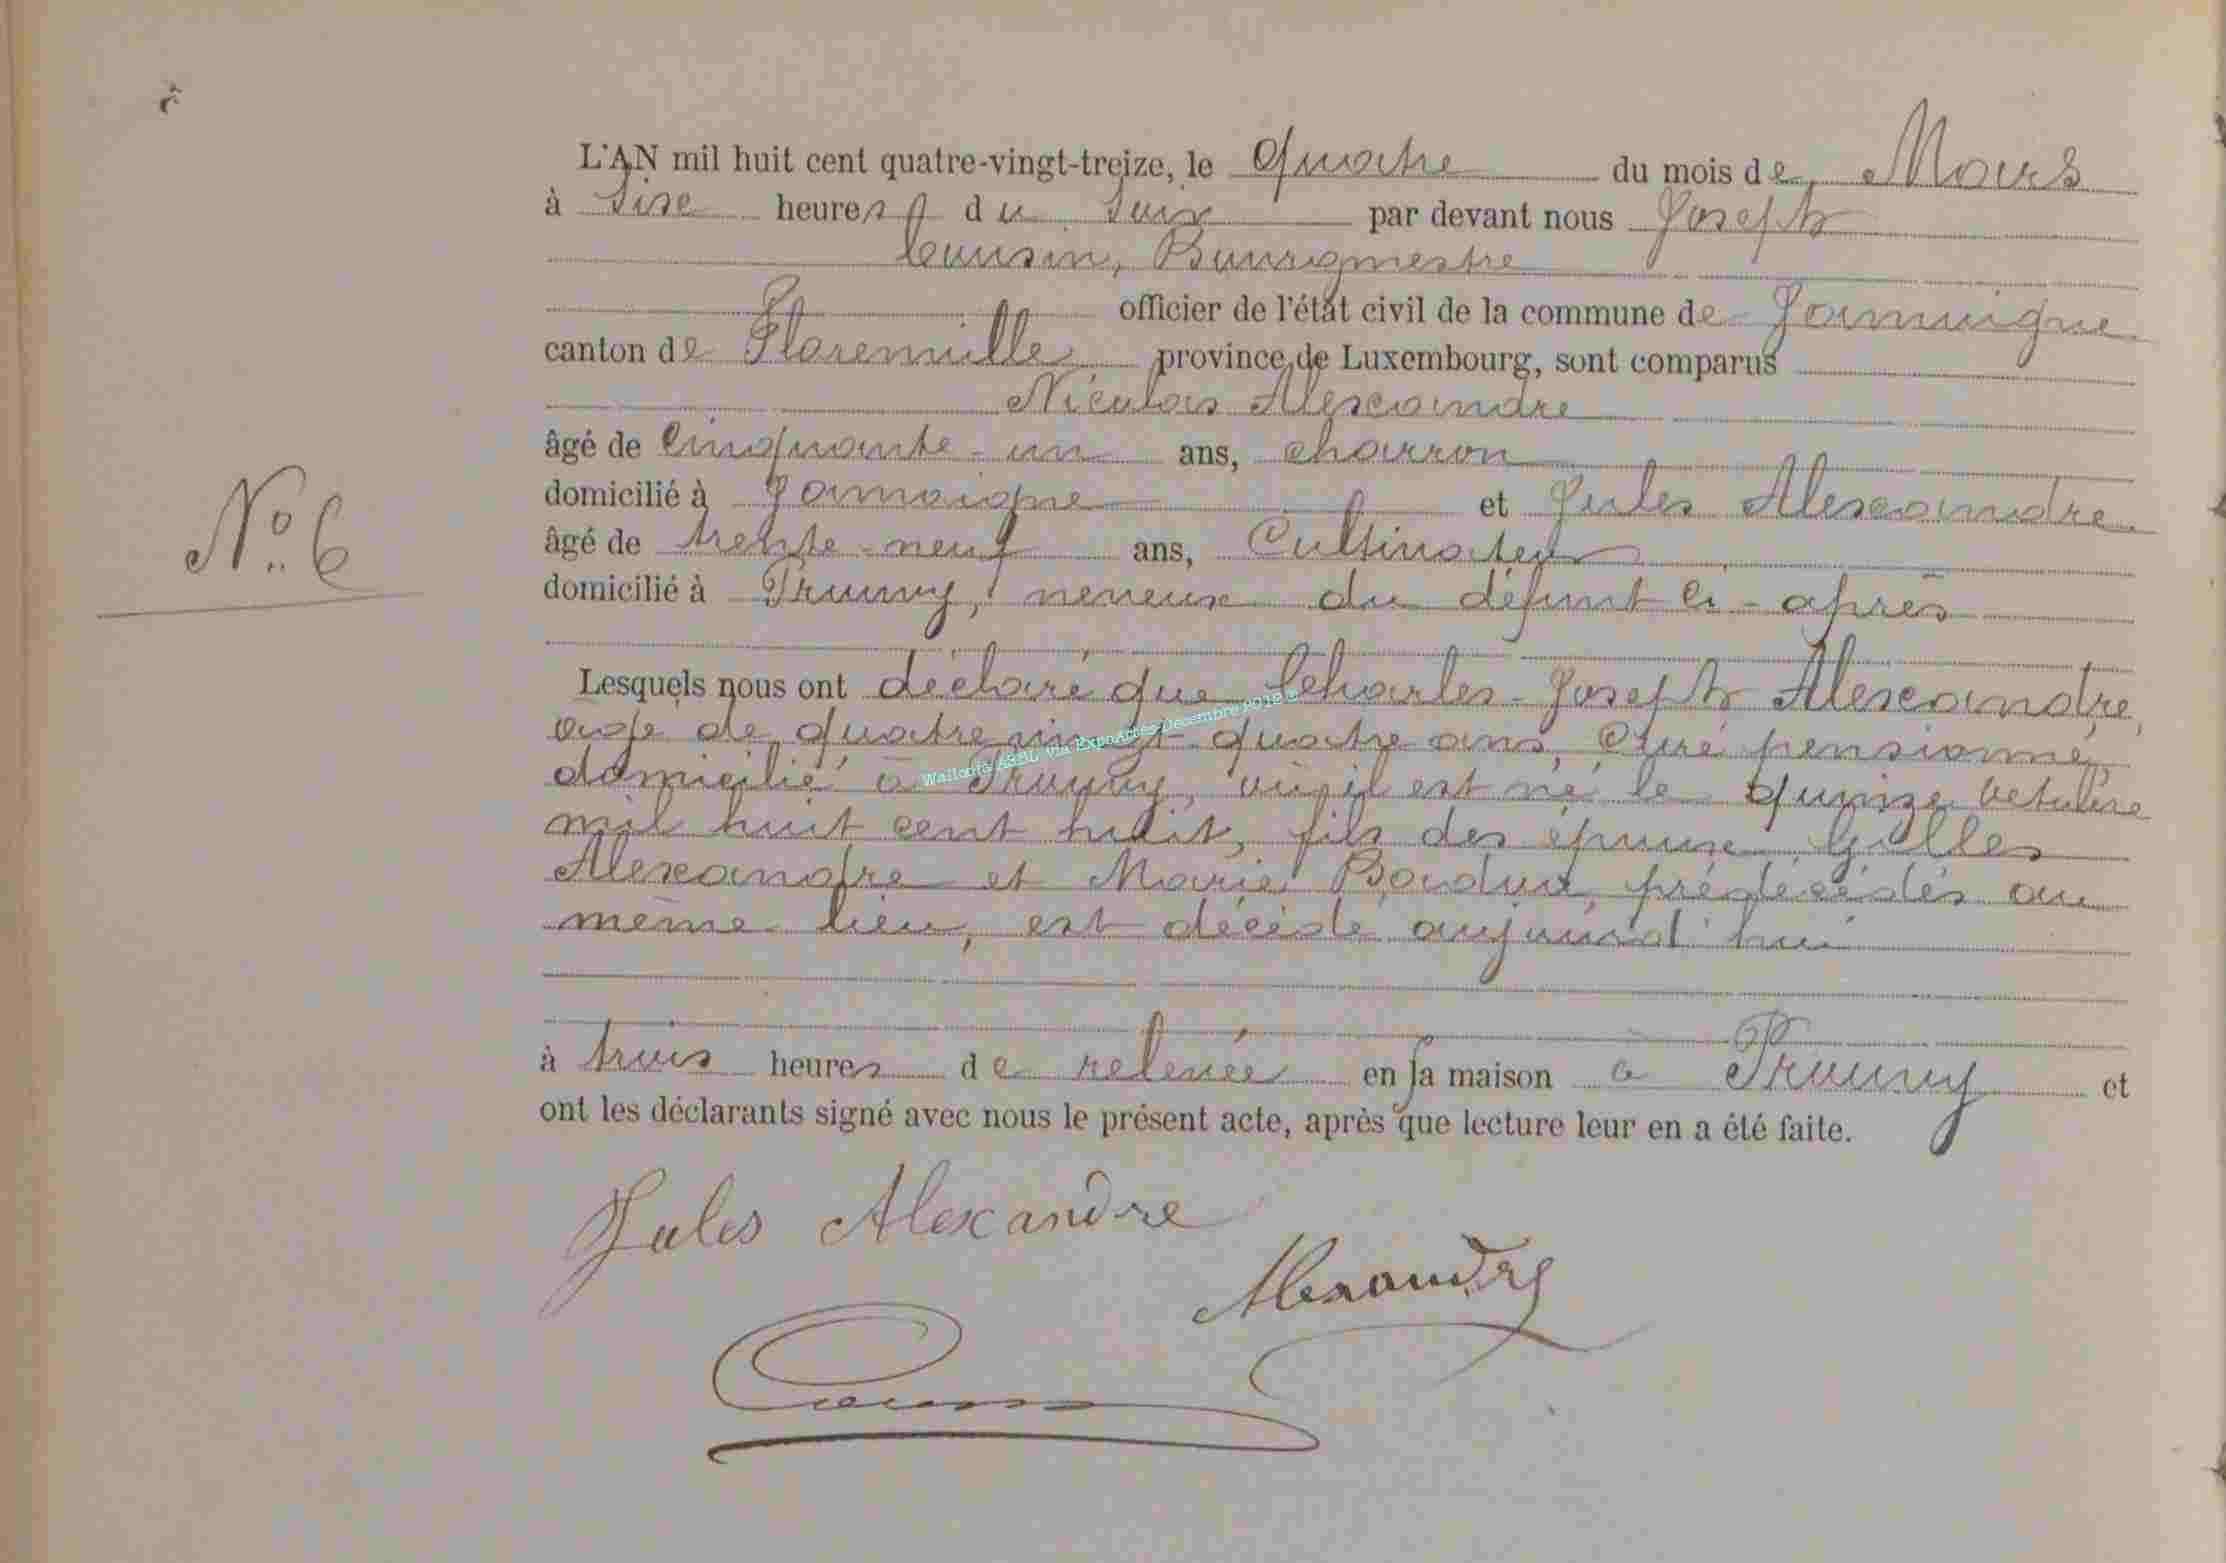 L'AN mil huit cent quatre-vingt-treize, le quatre du mois de Mars
à Six heures du Soir par devant nous Joseph
Cousin, Bourgmestre
officier de l'état civil de la commune de Jamoigne
canton de Florenville province de Luxembourg, sont comparus
Nicolas Alexandre
âgé de Cinquante-un ans, charron
domicilié à Jamoigne et Jules Alexandre
âgé de trente-neuf ans, Cultivateur
domicilié à Prouvy, neveux du défunt ci-après
N° 6
Lesquels nous ont déclaré que Charles-Joseph Alexandre,
âgé de quatre vingt-quatre ans, Curé pensionné,
domicilié à Prouvy, où il est né le quinze octobre
mil huit cent huit, fils des époux Gilles
Alexandre et Marie Bodux, prédécédés au
même lieu, est décédé aujourd'hui
à trois heures de relevée en sa maison à Prouvy et
ont les déclarants signé avec nous le présent acte, après que lecture leur en a été faite.
Jules Alexandre
Alexandre
Cousin
Wallonia ASBL via ExpoActes Decembre 2012 ©